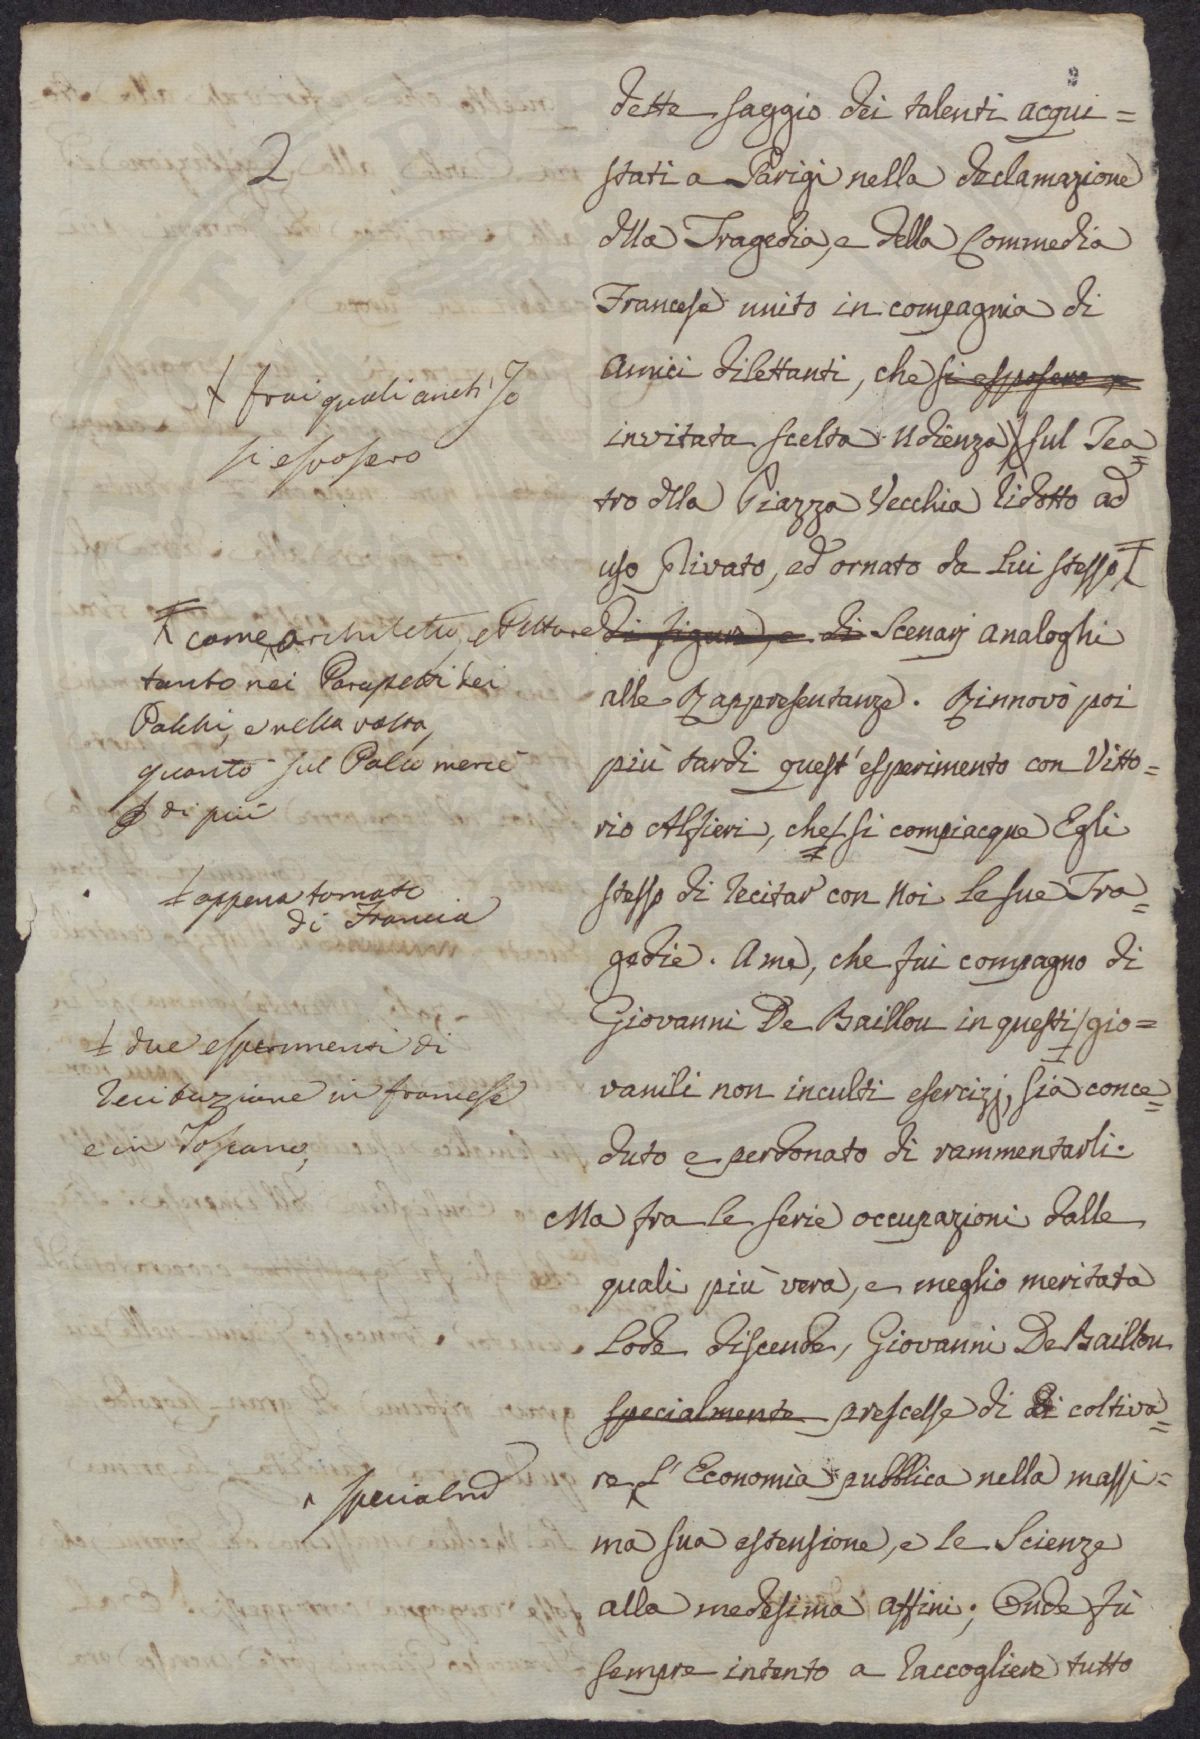 2
dette saggio dei talenti acqui=
stati a Parigi nella declamazione
dlla Tragedia, e della Commedia
Francese unito in compagnia di
Amici dilettanti, che si esposero a
invitata scelta Udienza sul Tea=
tro dlla Piazza Vecchia ridotto ad
uso privato, ed ornato da Lui stesso
di figure, e di Scenarj analoghi
alle Rappresentanze. Rinnovò poi
più tardi quest'esperimento con Vitto=
rio Alfieri, che si compiacque Egli
stesso di recitar con Noi le sue Tra=
gedie. A me, che fui compagno di
Giovanni De Baillou in questi gio=
vanili non inculti esercizj, sia conce=
duto e perdonato di rammentarli.
Ma fra le serie occupazioni dalle
quali più vera, e meglio meritata
Lode discende, Giovanni De Baillou
specialmente prescelse di di coltiva=
re L'Economia pubblica nella massi=
ma sua estensione, e le Scienze
alla medesima affini; Onde fù
sempre intento a raccogliere tutto
frai quali anch'Io
si esposero
come Architetto, e Pittore
tanto nei Parapetti dei
Palchi, e nella volta,
quanto sul Palco
di più
appena tornato
di Francia
due esperimenti di
recitazione in francese
e in Toscano,
specialmd